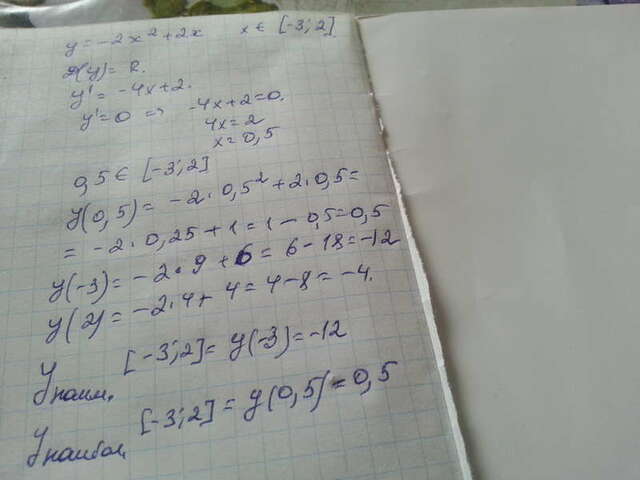 y = -2x² + 2x   x ∈ [-3; 2]
D(y) = R.
y' = -4x + 2.
y' = 0 => -4x + 2 = 0.
4x = 2
x = 0,5
0,5 ∈ [-3; 2]
y(0,5) = -2 · 0,5² + 2 · 0,5 =
= -2 · 0,25 + 1 = 1 - 0,5 = 0,5
y(-3) = -2 · 9 + 6 = 6 - 18 = -12
y(2) = -2 · 4 + 4 = 4 - 8 = -4.
y наим. [-3; 2] = y(-3) = -12
y наибол. [-3; 2] = y(0,5) = 0,5